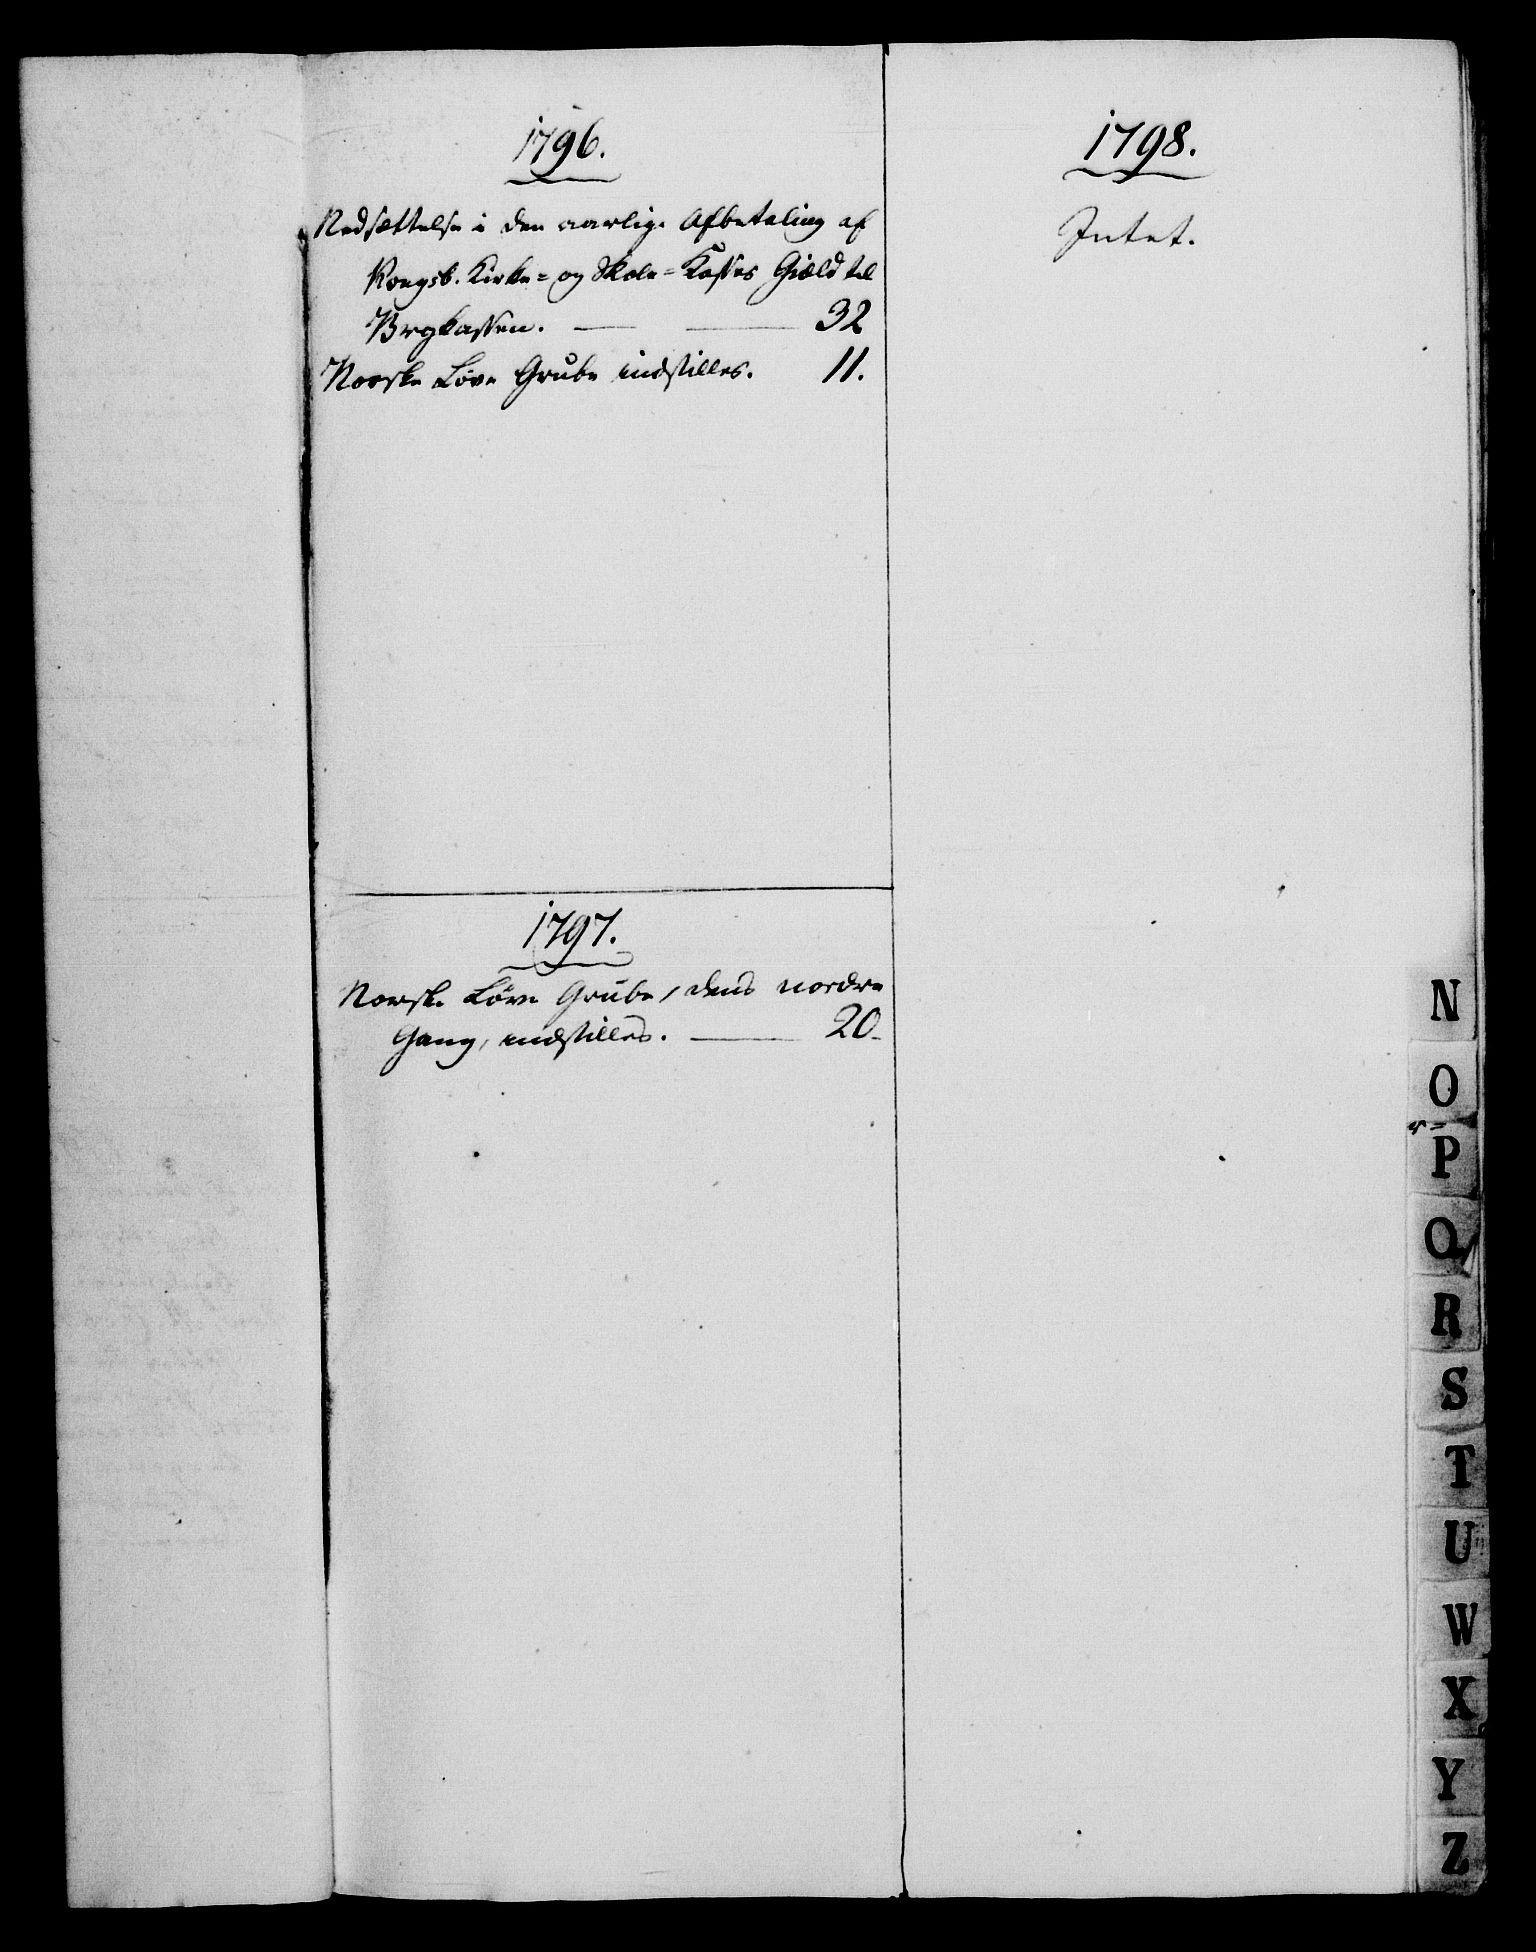 1796.
Nedsættelse i den aarlige Afbetaling af
Kongsb. Kirke= og Skole=Casses Gield til
Brgkassen. — — 32
Norske Løve Grube indstilles. 11.
1797.
Norske Løve Grube, dens nordre
Gang, indstilles. — 20.
1798.
Intet.
N
O
P
Q
R
S
T
U
W
X
Y
Z